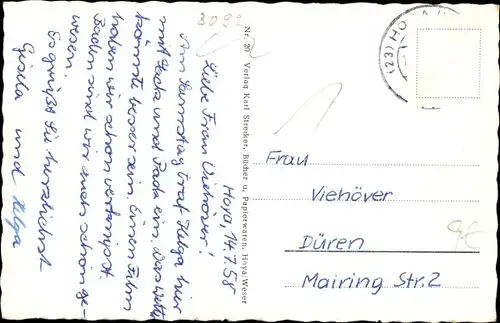 3099
Hoya, 14.7.58
Liebe Frau Viehöver!
Am Samstag traf Helga hier
mit Sack und Pack ein. Das Wetter
könnte besser sein. Einen Film
haben wir schon verknipst.
Baden sind wir auch schon ge-
wesen.
Es grüßt Sie herzlichst
Gisela und Helga
Nr. 20 Verlag Karl Strecker, Bücher u. Papierwaren, Hoya/Weser
(23) HO
Frau
Viehöver
Düren
Mairing Str. 2
9€